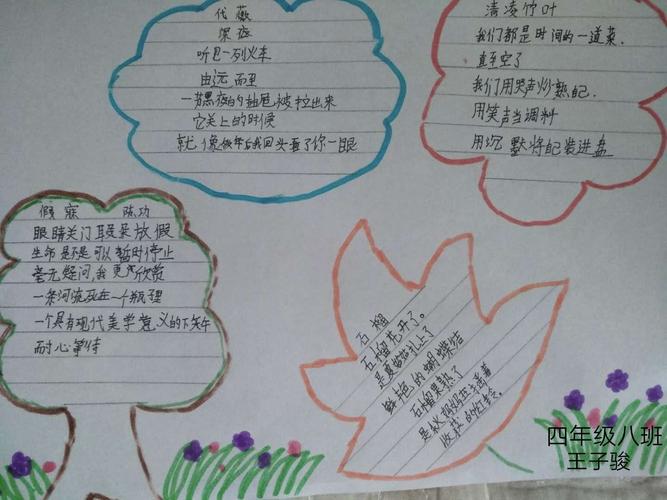 代薇
黑夜
听见一列火车
由远而至
一节黑夜的抽屉被拉出来
它关上的时候
就像似年后我回头看了你一眼
清凌竹叶
我们都是时间的一道菜.
直至空了
我们用哭声炒熟自己.
用笑声当调料
用沉默将自己装进盘
假寐 陈功
眼睛关门耳朵放假
生命是不是可以暂时停止
毫无疑问,我更欣赏
一条河流死在一个瓶里
一个具有现代美学意义的下午
耐心等待
石榴
石榴花开了。
是夏姑娘扎上了
鲜艳的蝴蝶结
石榴果熟了
是秋妈妈在举着
收获的灯笼。
四年级八班
王子骏